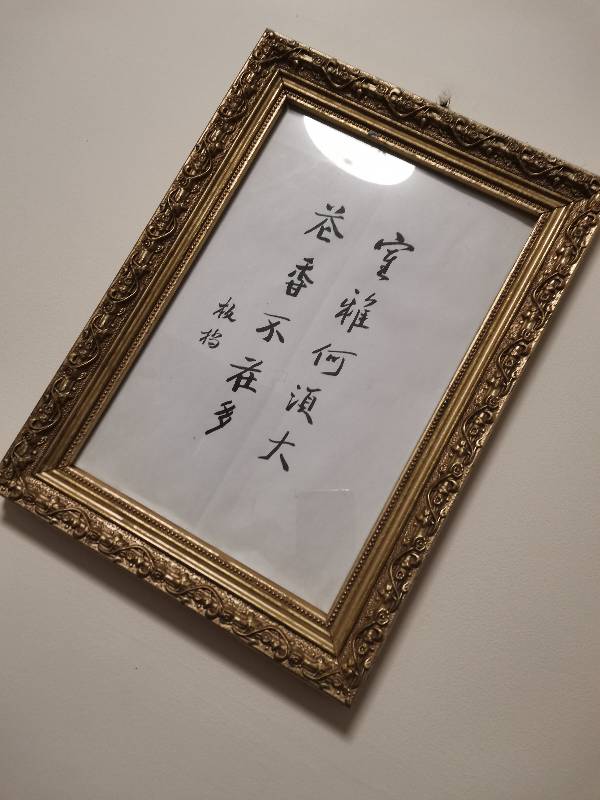 室雅何須大
花香不在多
板橋